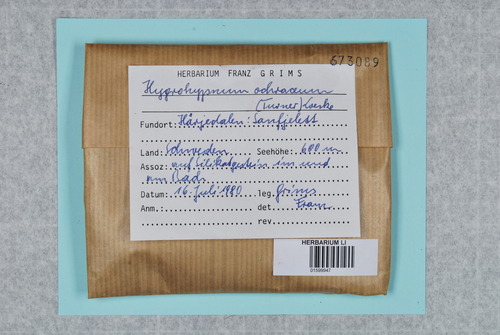 673089
HERBARIUM FRANZ GRIMS
Hygrohypnum ochraceum
(Turner) Loeske
Fundort: Härjedalen: Sonfjellet
Land: Schweden Seehöhe: 600 m
Assoz: auf Silikatgestein im und
am Bach
Datum: 16. Juli 1980 leg. Grims
Anm.: det Franz
rev.
HERBARIUM LI
01599947